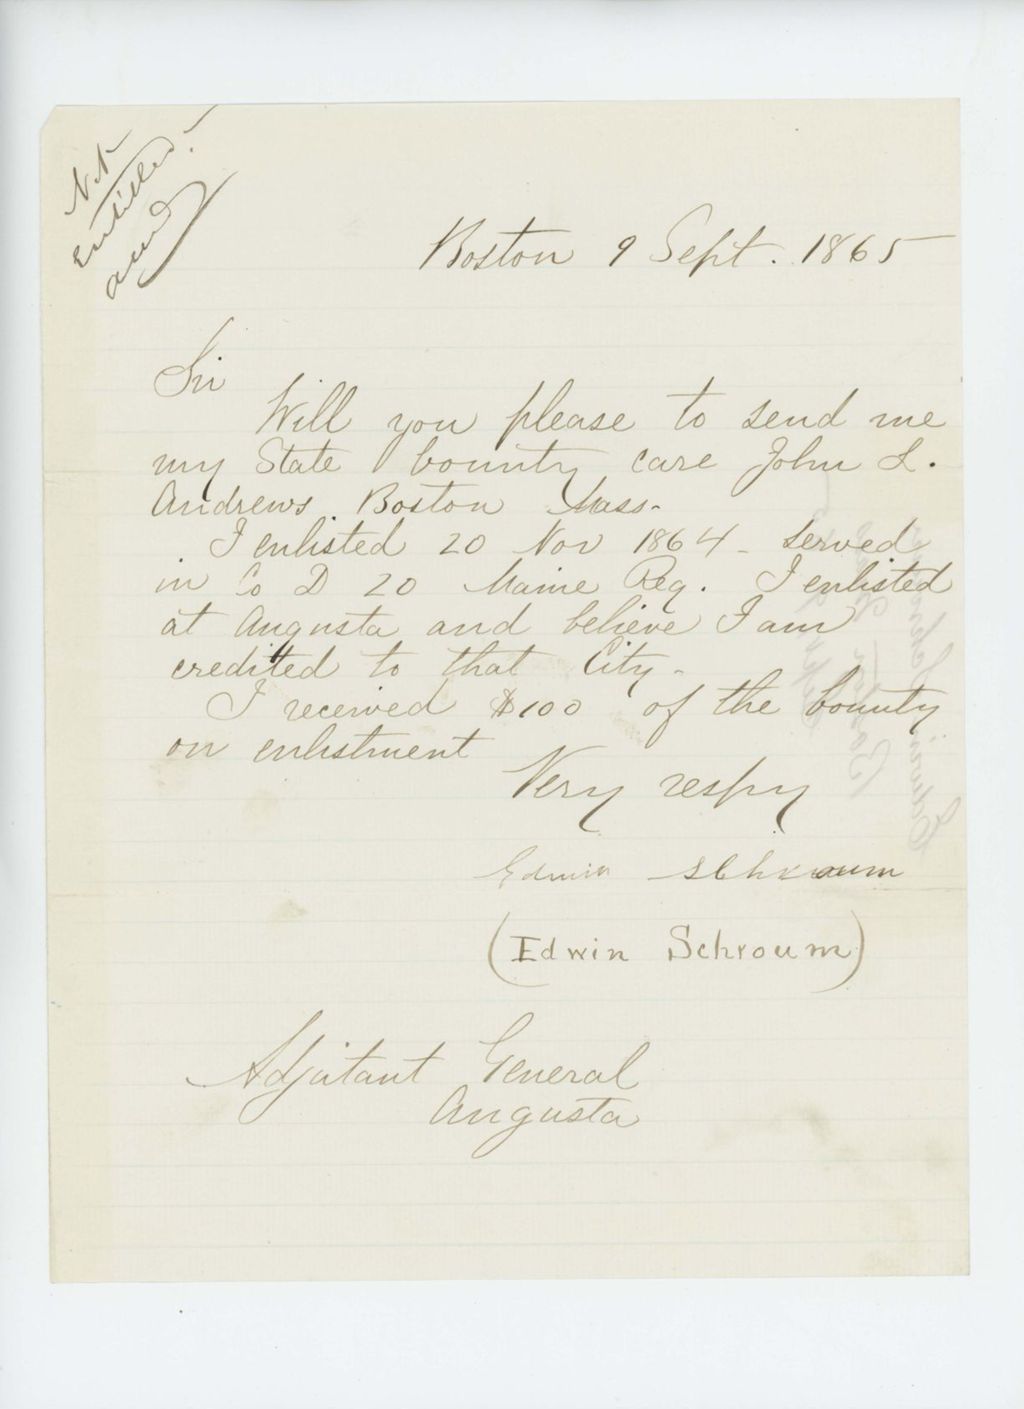 Not
Entitled
Boston 9 Sept. 1865
Sir
Will you please to send me
my State bounty care John L.
Andrews. Boston Mass.
I enlisted 20 Nov 1864 - served
in Co D 20 Maine Reg. I enlisted
at Augusta and believe I am
credited to that City -
I received $100 of the bounty
on enlistment
Very respy
Edwin Schroum
(Edwin Schroum)
Adjutant General
Augusta